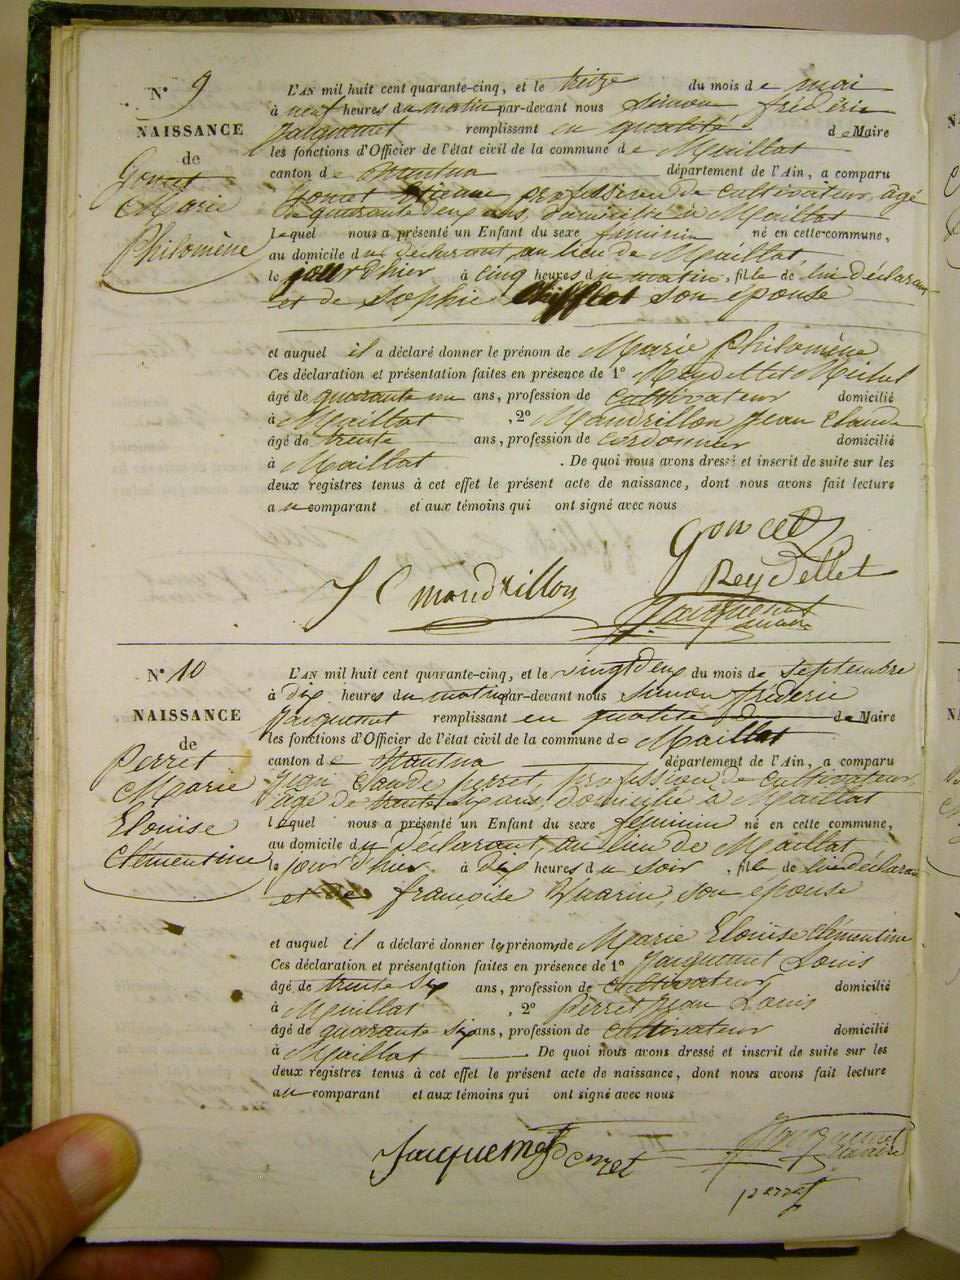 N° 9
NAISSANCE
de
Goncet
Marie
Philomène
L'AN mil huit cent quarante-cinq, et le treize du mois de mai
à neuf heures du matin par-devant nous Simon frédéric
Jacquemet remplissant en qualité de Maire
les fonctions d'Officier de l'état civil de la commune de Maillat
canton de Nantua département de l'Ain, a comparu
Goncet Etienne profession de cultivateur, agé
de quarante deux ans, domicilié à Maillat
lequel nous a présenté un Enfant du sexe féminin né en cette commune,
au domicile du déclarant, au lieu de Maillat,
le jour d'hier à cinq heures du matin, fille de lui déclarant
et de Sophie son épouse
et auquel il a déclaré donner le prénom de Marie Philomène
Ces déclaration et présentation faites en présence de 1° Reydellet Michel
âgé de quarante un ans, profession de cultivateur domicilié
à Maillat, 2° Mandrillon Jean Claude
âgé de trente ans, profession de cordonnier domicilié
à Maillat. De quoi nous avons dressé et inscrit de suite sur les
deux registres tenus à cet effet le présent acte de naissance, dont nous avons fait lecture
au comparant et aux témoins qui ont signé avec nous
Goncet
J C mandrillon
Reydellet
Jacquemet
maire
N° 10
NAISSANCE
de
Perret
Marie
Elouise
Clémentine
L'AN mil huit cent quarante-cinq, et le vingt deux du mois de septembre
à dix heures du matin par-devant nous Simon fréderic
Jacquemet remplissant en qualité de Maire
les fonctions d'Officier de l'état civil de la commune de Maillat
canton de Nantua département de l'Ain, a comparu
Jean Claude perret, profession de cultivateur,
agé de trente six ans, domicilié à Maillat
lequel nous a présenté un Enfant du sexe féminin né en cette commune,
au domicile du déclarant, au lieu de Maillat
le jour d'hier à dix heures du soir, fille de lui déclarant
et de françoise son épouse
et auquel il a déclaré donner les prénoms de Marie Elouise Clémentine
Ces déclaration et présentation faites en présence de 1° Jacquemet Louis
âgé de trente six ans, profession de cultivateur domicilié
à Maillat, 2° Perret Jean Louis
âgé de quarante six ans, profession de cultivateur domicilié
à Maillat. De quoi nous avons dressé et inscrit de suite sur les
deux registres tenus à cet effet le présent acte de naissance, dont nous avons fait lecture
au comparant et aux témoins qui ont signé avec nous
Jacquemet
Perret
Jacquemet
maire
perret